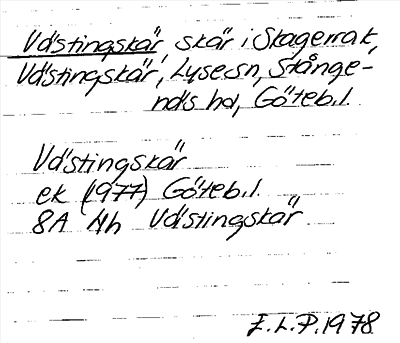 Västingskär skär i Skagerrak,
Västingskär, Lyse sn, Stånge-
näs hd, Göteb.l.
Västingskär
ek (1977) Göteb.l.
8A Nh Västingskär
E.L.P. 1978